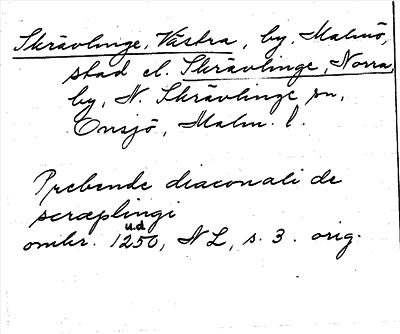 Skrävlinge, Västra, by, Malmö,
stad el. Skrävlinge, Norra,
by, N. Skrävlinge sn,
Onsjö, Malm. l.
Prebende diaconali de
scræplingi
u.d.
omkr. 1250, NL, s. 3. orig.